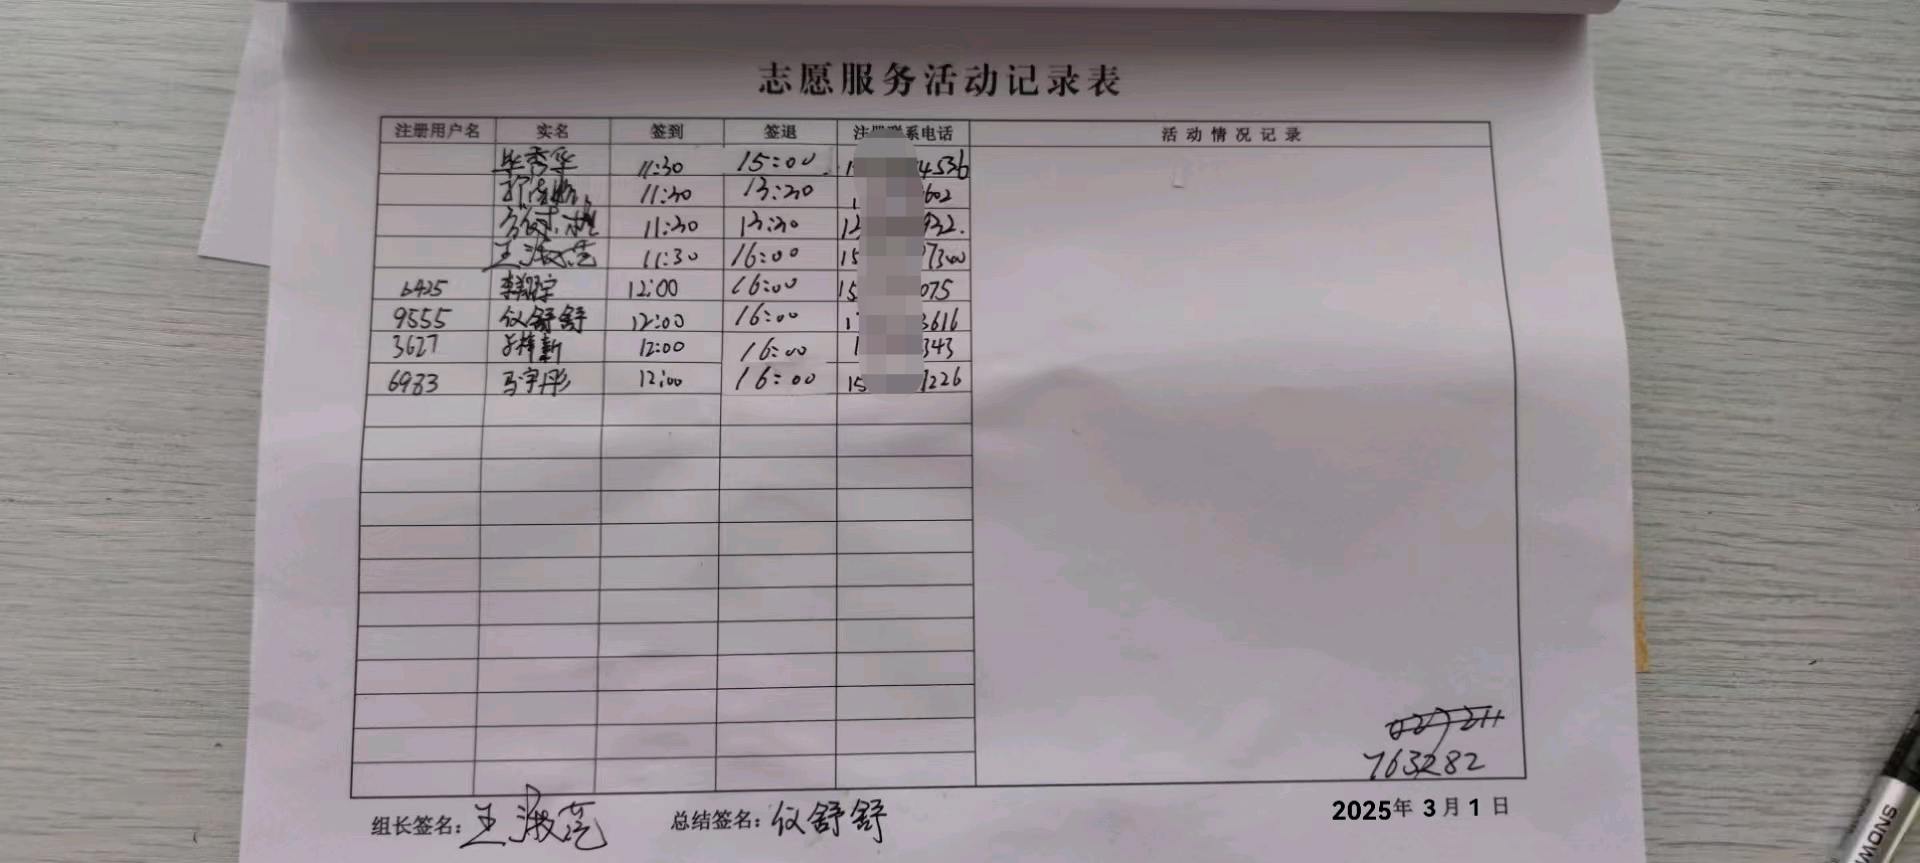 志愿服务活动记录表
注册用户名 实名 签到 签退 注册联系电话 活动情况记录
毕秀华 11:30 15:00 1 4536
11:30 13:30 1 602
11:30 13:30 13 932.
王淑苋 11:30 16:00 15 7300
6425 李 宇 12:00 16:00 15 075
9555 仪舒舒 12:00 16:00 1 3616
3627 梓新 12:00 16:00 1 343
6983 马宇彤 12:00 16:00 15 1226
027211
763282
组长签名: 王淑苋 总结签名: 仪舒舒 2025年3月1日
SNOW